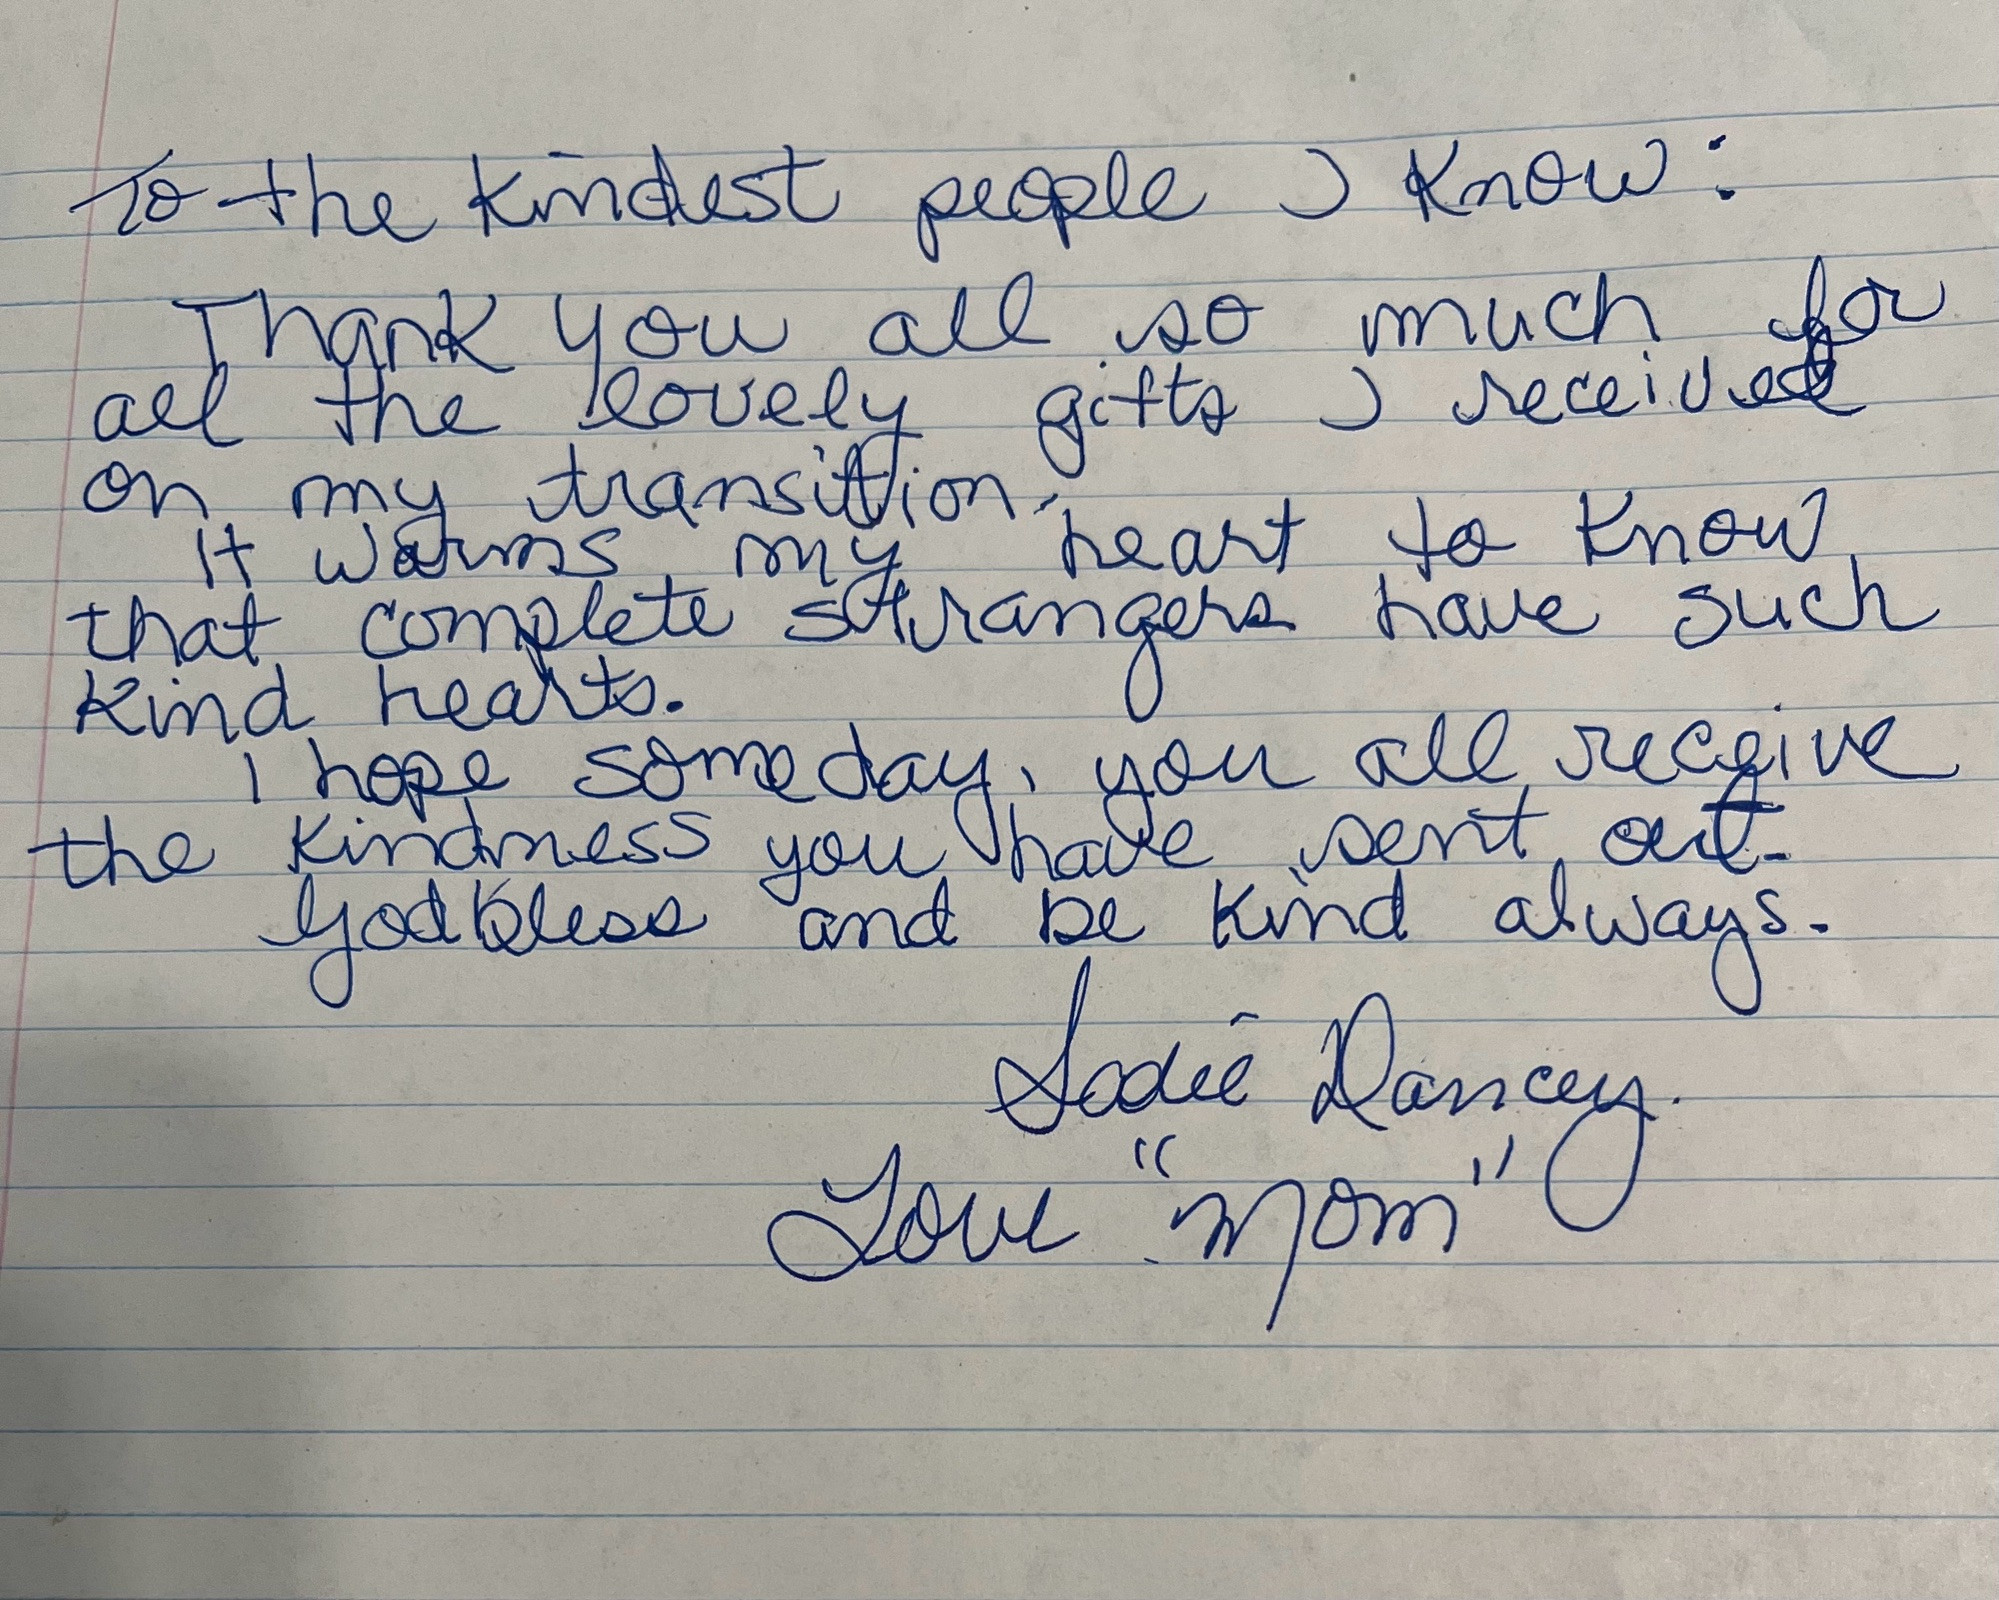 To the kindest people I know:
Thank you all so much for
all the lovely gifts I received
on my transition.
It warms my heart to know
that complete strangers have such
kind hearts.
I hope someday, you all receive
the kindness you have sent out.
God bless and be kind always.
Dancey.
Love "Mom"